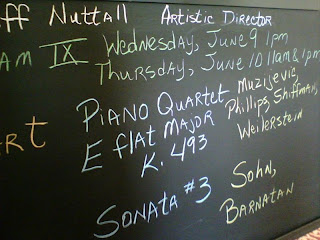 ff Nuttall Artistic Director
AM IX Wednesday, June 9 1pm
Thursday, June 10 11am & 1pm
Piano Quartet Muzijevic
E flat Major Phillips, Shiffman,
K. 493 Weilerstein
RT
Sonata #3 Sohn,
Barnatan